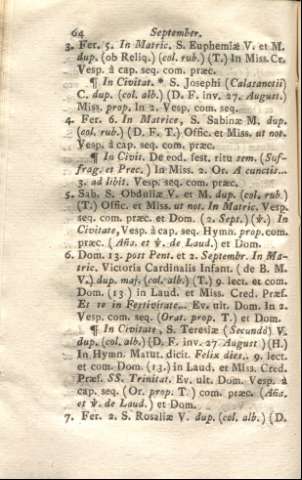 64 September.
3. Fer. 5. In Matric. S. Euphemiæ V. et M.
dup. (ob Reliq.) (col. rub.) (T.) In Miss. Cr.
Vesp. à cap. seq. com. præc.
¶ In Civitat. * S. Josephi (Calasanctii)
C. dup. (col. alb.) (D. F. inv. 27. August.)
Miss. prop. In 2. Vesp. com. seq.
4. Fer. 6. In Matrice, S. Sabinæ M. dup.
(col. rub.) (D. F. T.) Offic. et Miss. ut not.
Vesp. à cap. seq. com. præc.
¶ In Civit. De eod. fest. ritu sem. (Suf-
frag. et Prec.) In Miss. 2. Or. A cunctis...
3. ad libit. Vesp. seq. com. præc.
5. Sab. S. Obduliæ V. et M. dup. (col. rub.)
(T.) Offic. et Miss. ut not. In Matric. Vesp.
seq. com. præc. et Dom. (2. Sept.) (℣.) In
Civitate, Vesp. à cap. seq. Hymn. prop. com.
præc. (Aña. et ℣. de Laud.) et Dom.
6. Dom. 13. post Pent. et 2. Septembr. In Ma-
tric. Victoria Cardinalis Infant. (de B. M.
V.) dup. maj. (col. alb.) (T.) 9. lect. et com.
Dom. (13.) in Laud. et Miss. Cred. Præf.
Et te in Festivitate... Ev. ult. Dom. In 2.
Vesp. com. seq. (Orat. prop. T.) et Dom.
¶ In Civitate, S. Teresiæ (Secundò) V.
dup. (col. alb.) (D. F. inv. 27. August.) (H.)
In Hymn. Matut. dicit. Felix dies.. 9. lect.
et com. Dom. (13.) in Laud. et Miss. Cred.
Præf. SS. Trinitat. Ev. ult. Dom. Vesp. à
cap. seq. (Or. prop. T.) com. præc. (Aña.
et ℣. de Laud.) et Dom.
7. Fer. 2. S. Rosaliæ V. dup. (col. alb.) (D.